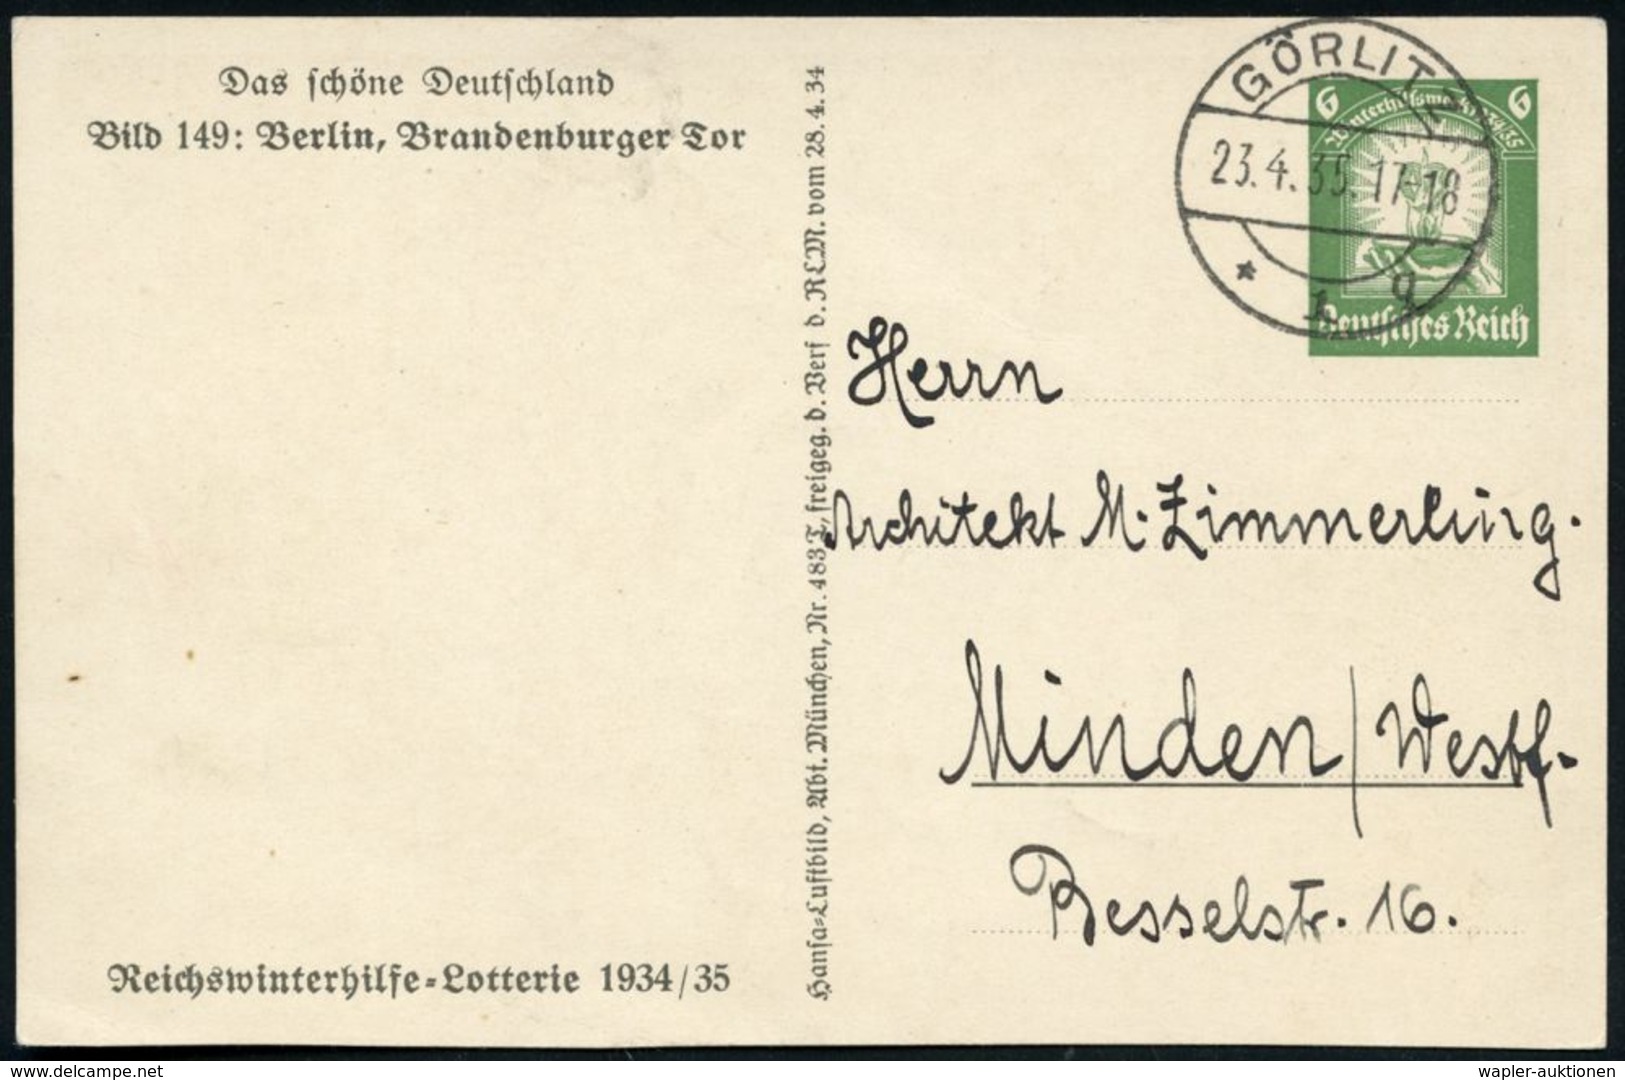 Das schöne Deutschland
Bild 149: Berlin, Brandenburger Tor
Reichswinterhilfe-Lotterie 1934/35
Hansa-Luftbild, Abt. München, Nr. 483 T, freigeg. d. Verf d. RLM. vom 28. 4. 34
GÖRLITZ
23.4.35.17-18
* 1 q
6 6
Winterhilfswerk 1934/35
Deutsches Reich
Herrn
Architekt M. Zimmerling.
Minden / Westf.
Besselstr. 16.
www.delcampe.net
wapler-auktionen